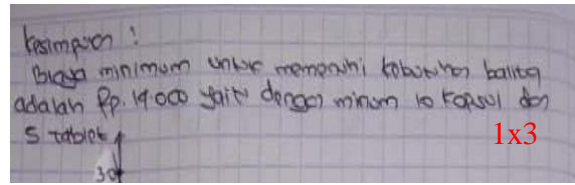 Kesimpulan :
Biaya minimum untuk memenuhi kebutuhan balita
adalah Rp. 19.000 yaitu dengan minum 10 Kapsul dan
5 tablet
1x3
30